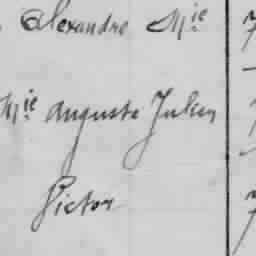 Alexandre Mie
Mie Auguste Julien
Victor